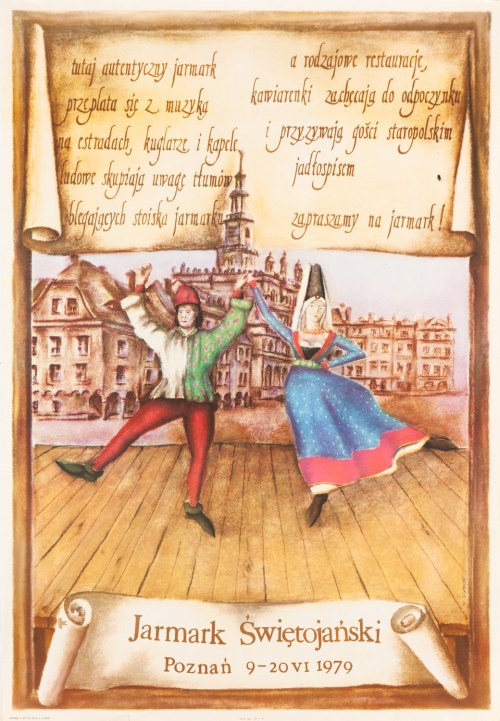 tutaj autentyczny jarmark
przeplata się z muzyką
na estradach, kuglarze i kapele
ludowe skupiają uwagę tłumów
oblegających stoiska jarmarku
a rodzajowe restauracje,
kawiarenki zachęcają do odpoczynku
i przyzywają gości staropolskim
jadłospisem
zapraszamy na jarmark!
Jarmark Świętojański
Poznań 9-20 VI 1979